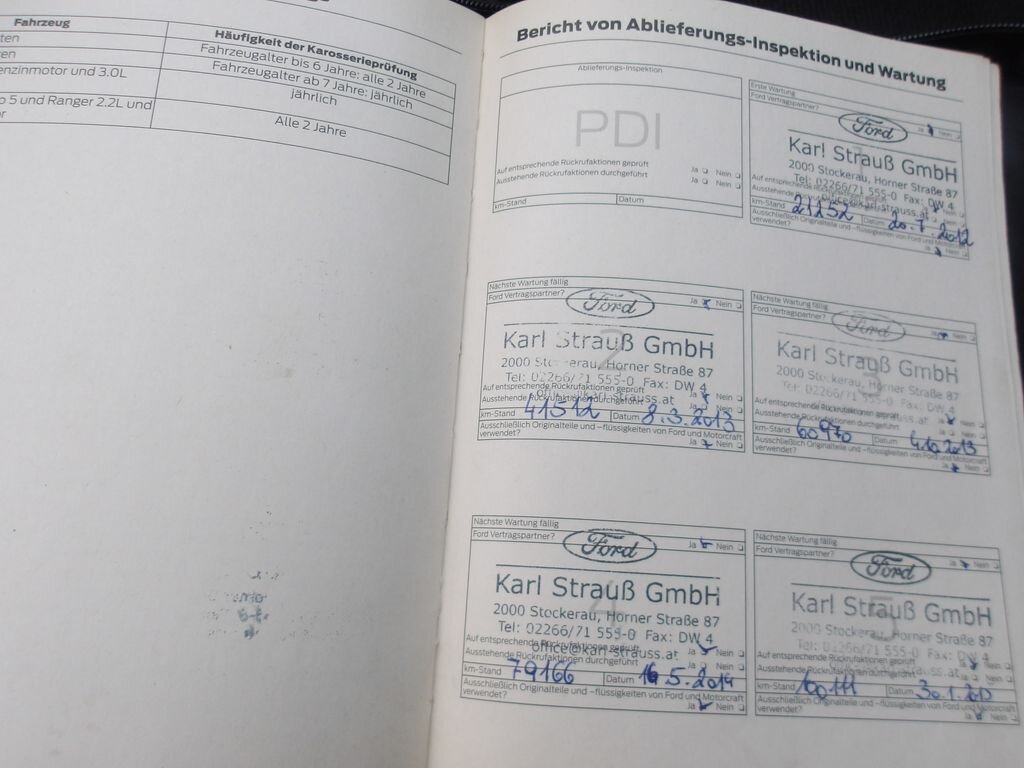 Fahrzeug
ten
en
enzinmotor und 3.0L
o 5 und Ranger 2.2L und
r
Häufigkeit der Karosserieprüfung
Fahrzeugalter bis 6 Jahre: alle 2 Jahre
Fahrzeugalter ab 7 Jahre: jährlich
jährlich
Alle 2 Jahre
Bericht von Ablieferungs-Inspektion und Wartung
Ablieferungs-Inspektion
PDI
Auf entsprechende Rückrufaktionen geprüft Ja Nein
Ausstehende Rückrufaktionen durchgeführt Ja Nein
km-Stand Datum
Erste Wartung
Ford Vertragspartner? Ja Nein
Ford
Karl Strauß GmbH
2000 Stockerau, Horner Straße 87
Tel: 02266/71 555-0 Fax: DW 4
Auf entsprechende
km-Stand 21252 Datum 20.7.2012
Ausschließlich Originalteile und -flüssigkeiten von Ford und Motorcraft
Ja Nein
Nächste Wartung fällig
Ford Vertragspartner? Ja Nein
Ford
2
Karl Strauß GmbH
2000 Stockerau, Horner Straße 87
Tel: 02266/71 555-0 Fax: DW 4
Auf entsprechende Rückrufaktionen geprüft
Ausstehende Rückrufaktionen durchgeführt
km-Stand 41512 Datum 8.3.2013
Ausschließlich Originalteile und -flüssigkeiten von Ford und Motorcraft
verwendet? Ja Nein
Nächste Wartung fällig
Ford Vertragspartner?
Ford
3
Karl Strauß GmbH
2000 Stockerau, Horner Straße 87
Tel: 02266/71 555-0 Fax: DW 4
Auf entsprechende Rückrufaktionen geprüft
Ausstehende Rückrufaktionen durchgeführt Ja Nein
km-Stand 60970 Datum 4.6.2013
Ausschließlich Originalteile und -flüssigkeiten von Ford und Motorcraft
verwendet? Ja Nein
Nächste Wartung fällig
Ford Vertragspartner? Ja Nein
Ford
4
Karl Strauß GmbH
2000 Stockerau, Horner Straße 87
Tel: 02266/71 555-0 Fax: DW 4
Auf entsprechende Rückrufaktionen geprüft Ja Nein
office@karl-strauss.at
Ausstehende Rückrufaktionen durchgeführt Ja Nein
km-Stand 79166 Datum 5.2014
Ausschließlich Originalteile und -flüssigkeiten von Ford und Motorcraft
verwendet? Ja Nein
Nächste Wartung fällig
Ford Vertragspartner? Ja Nein
Ford
5
Karl Strauß GmbH
2000 Stockerau, Horner Straße 87
Tel: 02266/71 555-0 Fax: DW 4
Auf entsprechende Rückrufaktionen geprüft
Ausstehende Rückrufaktionen durchgeführt
km-Stand Datum
Ausschließlich Originalteile und -flüssigkeiten von Ford und Motorcraft
verwendet? Ja Nein